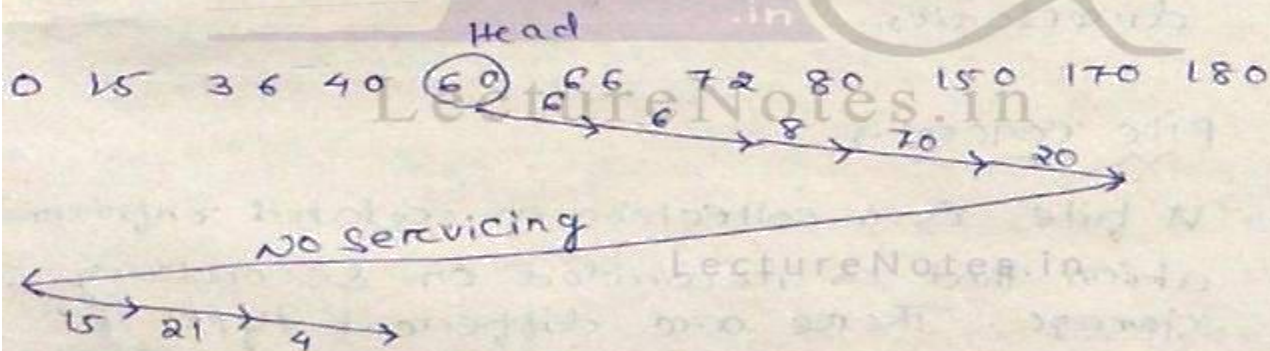 .in
Head
0 15 36 40 60 66 72 80 150 170 180
LectureNotes.in
6 6 8 70 20
No Serevicing
LectureNotes.in
15 21 4